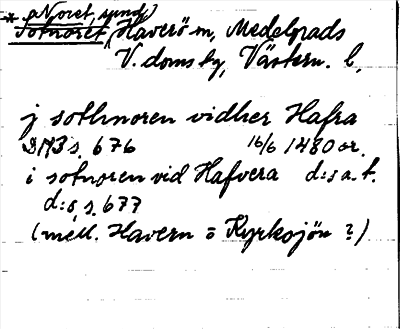 * (Noret, synd)
Sotnoret, Haverö sn, Medelpads
V. doms by, Västern. l,
j sothnoren vidher Hafra
DMS s. 676 16/6 1480 or.
i sotnoren vid Hafvera d:s a. t.
d:o, s. 677
(mell. Havern o Kyrksjön ?)